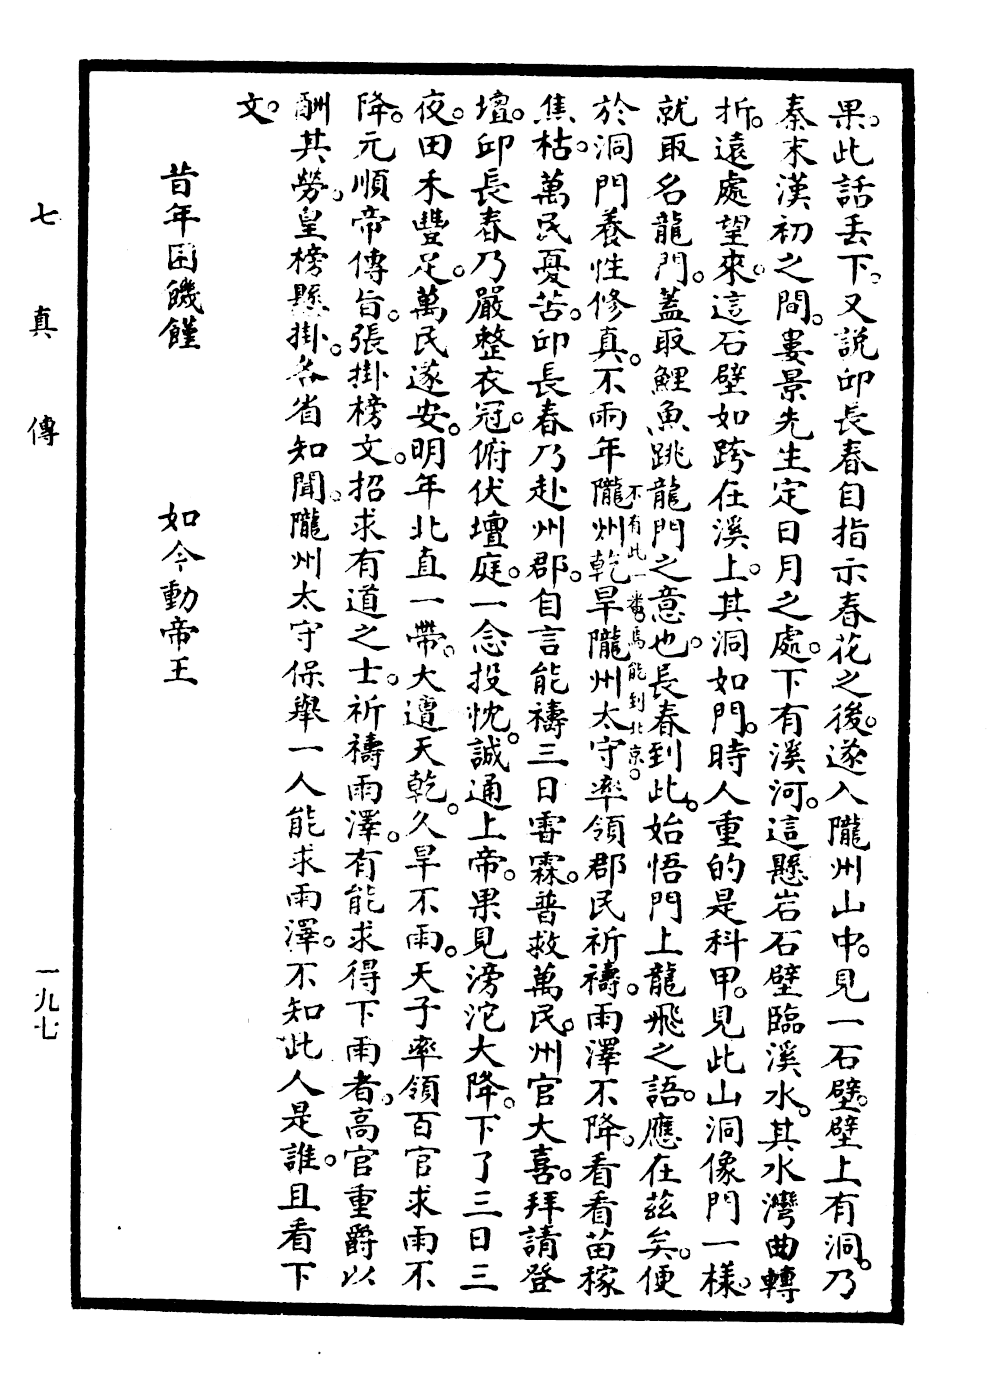 果。此話丢下。又説邱長春自指示春花之後。遂入隴州山中。見一石壁。壁上有洞。乃
秦末漢初之間。婁景先生定日月之處。下有溪河。這懸岩石壁臨溪水。其水灣曲轉
折。遠處望來。這石壁如跨在溪上。其洞如門。時人重的是科甲。見此山洞像門一樣。
就取名龍門。蓋取鯉魚跳龍門之意也。長春到此。始悟門上龍飛之語。應在茲矣。便
於洞門養性修真。不雨年隴州乾旱隴州太守率領郡民祈禱。雨澤不降。看看苗稼
不有此一番焉能到北京。
焦枯。萬民憂苦。邱長春乃赴州郡。自言能禱三日霽霖。普救萬民。州官大喜。拜請登
壇。邱長春乃嚴整衣冠。俯伏壇庭。一念投忱。誠通上帝。果見滂沱大降。下了三日三
夜。田禾豐足。萬民遂安。明年北直一帶。大遭天乾。久旱不雨。天子率領百官求雨不
降。元順帝傳旨。張掛榜文。招求有道之士。祈禱雨澤。有能求得下雨者。高官重爵以
酬其勞。皇榜懸掛。各省知聞。隴州太守保舉一人能求雨澤。不知此人是誰。且看下
文。
昔年困饑饉　如今動帝王
七真傳
一九七